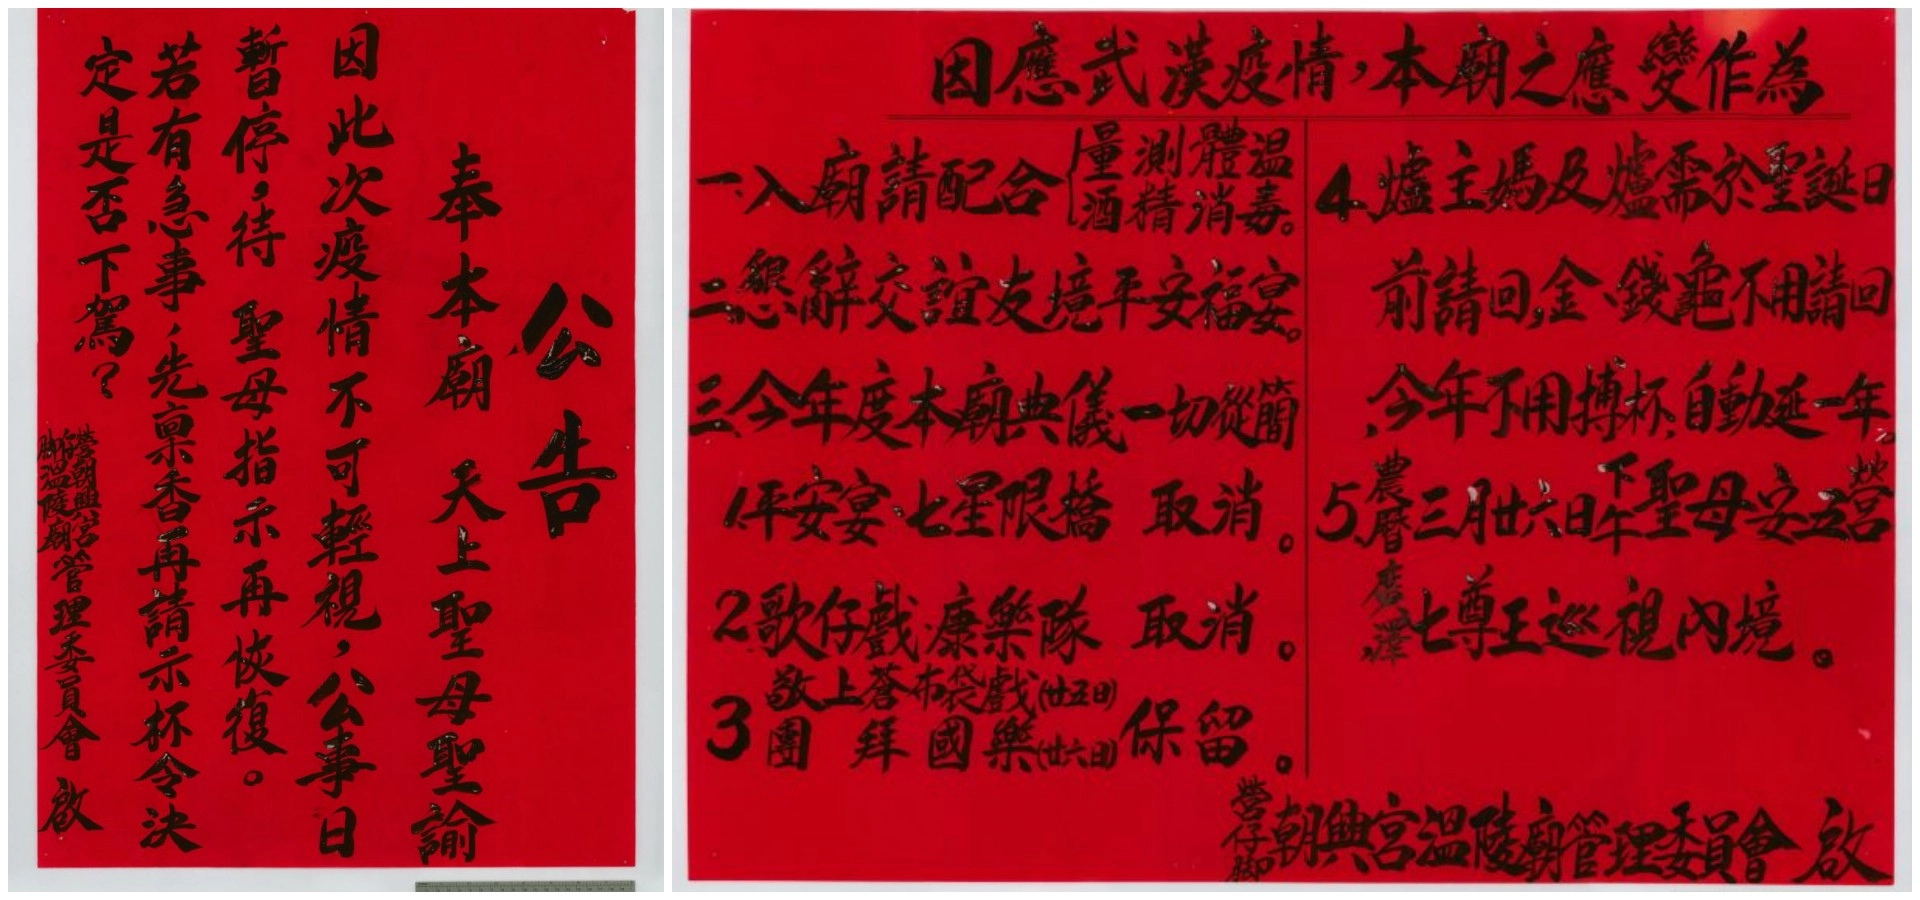 公告
奉本廟 天上聖母聖諭
因此次疫情不可輕視，公事日
暫停，待 聖母指示再恢復。
若有急事，先稟香再請示杯令決
定是否下駕？
營仔腳朝興宮溫陵廟管理委員會 啟
因應武漢疫情，本廟之應變作為
一、入廟請配合
量測體溫
酒精消毒。
二、懇辭交誼友境平安福宴。
三、今年度本廟典儀一切從簡
1.平安宴、七星限橋 取消。
2歌仔戲、康樂隊 取消。
3
敬上蒼布袋戲(廿五日)
團拜國樂(廿六日)
保留。
4.爐主媽及爐需於聖誕日
前請回，金、錢龜不用請回
，今年不用搏杯，自動延一年。
5.農曆三月廿六日下午聖母安五營
七尊王巡視內境。
營仔腳朝興宮溫陵廟管理委員會 啟